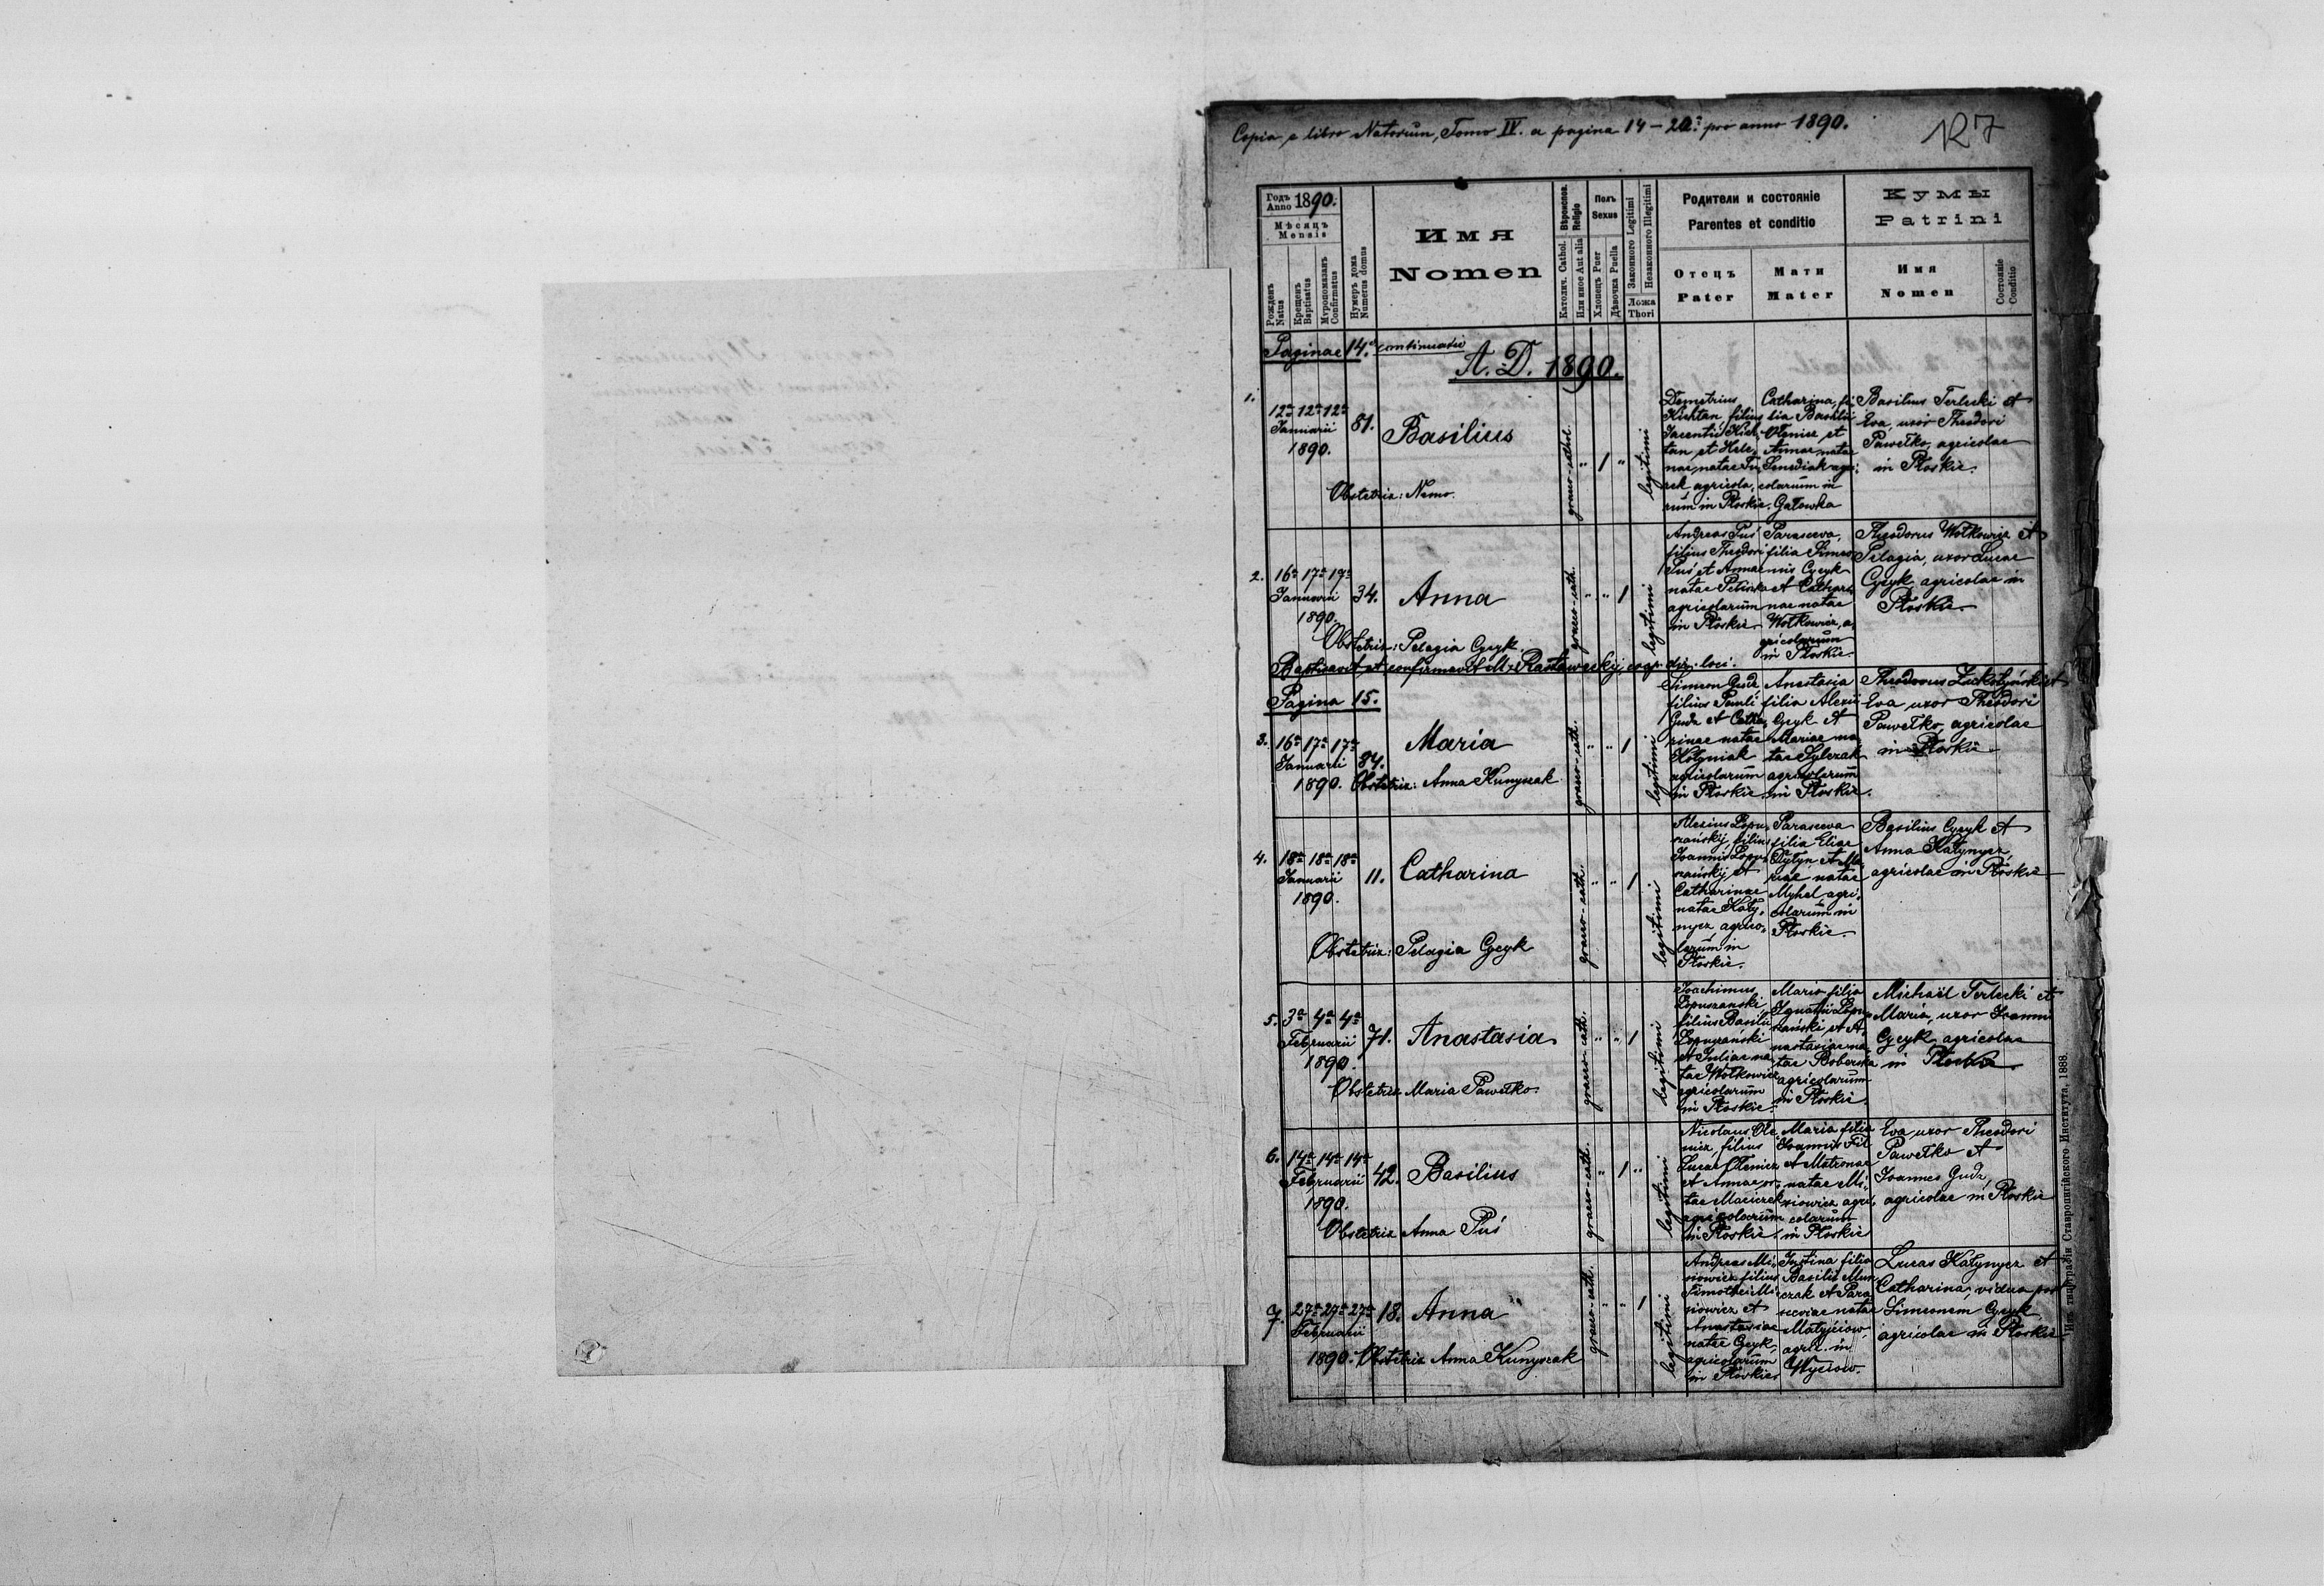 Copia e libro Natorum, Tomo IV. a pagina 14 – 20ª pro anno 1890.
127
Годъ
Anno 1890.
Мѣсяць
Mensis
Рожденъ
Natus
Крещенъ
Baptisatus
Мѵропомазанъ
Confirmatus
Нумеръ дома
Numerus domus
Имя
Nomen
Вѣроиспов.
Religio
Католич. Cathol.
Или иное Aut alia
Полъ
Sexus
Хлопецъ Puer
Дѣвочка Puella
Законного Legitimi
Незаконного Illegitimi
Ложа
Thori
Родители и состояніе
Parentes et conditio
Отецъ
Pater
Мати
Mater
Кумы
Patrini
Имя
Nomen
Состояніе
Conditio
Paginae 14. continuatio
A. D. 1890.
1.
12ª 12ª 12ª
Januarii
1890.
81.
Basilius
Obstetrix: Nemo.
graeco-cathol.
" 1 "
legitimi
Demetrius
Kichtan filius
Jacentii Kich-
tan et Hele-
nae, natae Tu-
rek agricola-
rum in Płoskie.
Catharina, fi-
lia Basilii
Olenicz et
Annae, natae
Senediak agri-
colarum in
Gałowka
Basilius Terlecki et
Eva, uxor Theodori
Pawełko, agricolae
in Płoskie.
2.
16ª 17ª 19ª
Januarii
1890.
34.
Anna
Obstetrix: Pelagia Cycyk.
graeco-cath.
" " 1
legitimi
Andreas Puś
filius Theodori
Puś et Annae
natae
agricolarum
in Płoskie
Parasceva,
filia Simeo-
nis Cycyk
et Cathari-
nae natae
Wołkowicz, a-
gricolarum
in Płoskie.
Theodorus Wołkowicz et
Pelagia, uxor Lucae
Cycyk agricolae in
Płoskie.
Baptisavit et confirmavit M. Rastawecki, coop. loci.
Pagina 15.
3.
16ª 17ª 17ª
Januarii
1890.
84.
Maria
Obstetrix: Anna Kunyczak
graeco-cath.
" " 1
legitimi
Simeon Gudz
filius Pauli
Gudz et Catha-
rinae natae
Kołyniak
agricolarum
in Płoskie
Anastasia
filia Alexii
Cycyk et
Mariae na-
tae Sylczak
agricolarum
in Płoskie.
Theodorus et
Eva uxor Theodori
Pawełko, agricolae
in Płoskie
4.
18ª 18ª 18ª
Januarii
1890.
11.
Catharina
Obstetrix: Pelagia Cycyk
graeco-cath.
" " 1
legitimi
Alexius Łopu-
szańskij filius
Joannis Łopu-
szańskij et
Catharinae
natae Kały-
nycz agrico-
larum in
Płoskie.
Parasceva
filia Eliae
Dytyn et Ma-
riae natae
Myhel agri-
colarum in
Płoskie.
Basilius Cycyk et
Anna Kałynycz,
agricolae in Płoskie
5.
3ª 4ª 4ª
Februarii
1890.
71.
Anastasia
Obstetrix Maria Pawełko.
graeco-cath.
" " 1
legitimi
Joachimus
Łopuszański
filius Basilii
Łopuszański
et Juliae na-
tae Wołkowicz
agricolarum
in Płoskie.
Maria filia
Ignatii Łopu-
szański et A-
nastasiae na-
tae Boberska
agricolarum
in Płoskie.
Michaël Terlecki et
Maria, uxor Joannis
Cycyk, agricolae
in Płoskie.
6.
14ª 14ª 14ª
Februarii
1890.
42.
Basilius
Obstetrix Anna Puś
graeco-cath.
" 1 "
legitimi
Nicolaus Ole-
nicz, filius
Lucae Olenicz
et Annae
natae Maciczek
agricolarum
in Płoskie.
Maria filia
Joannis Fil
et Matronae
natae Mi-
siowicz agri-
colarum
in Płoskie
Eva uxor Theodori
Pawełko et
Joannes Gudz,
agricolae in Płoskie
7.
27ª 27ª 27ª
Februarii
1890.
18.
Anna
Obstetrix Anna Kunyczak
graeco-cath.
" " 1
legitimi
Andreas Mi-
siowicz filius
Timothei Mi-
siowicz et
Anastasiae
natae Cycyk,
agricolarum
in Płoskie
Justina filia
Basilii Mun-
czak et Para-
scevae natae
Matyjciow,
agric. in
Wyciow.
Lucas Kałynycz et
Catharina, vidua post
Simeonem Cycyk
agricolae in Płoskie
Изъ типографіи Ставропигійского Института, 1888.